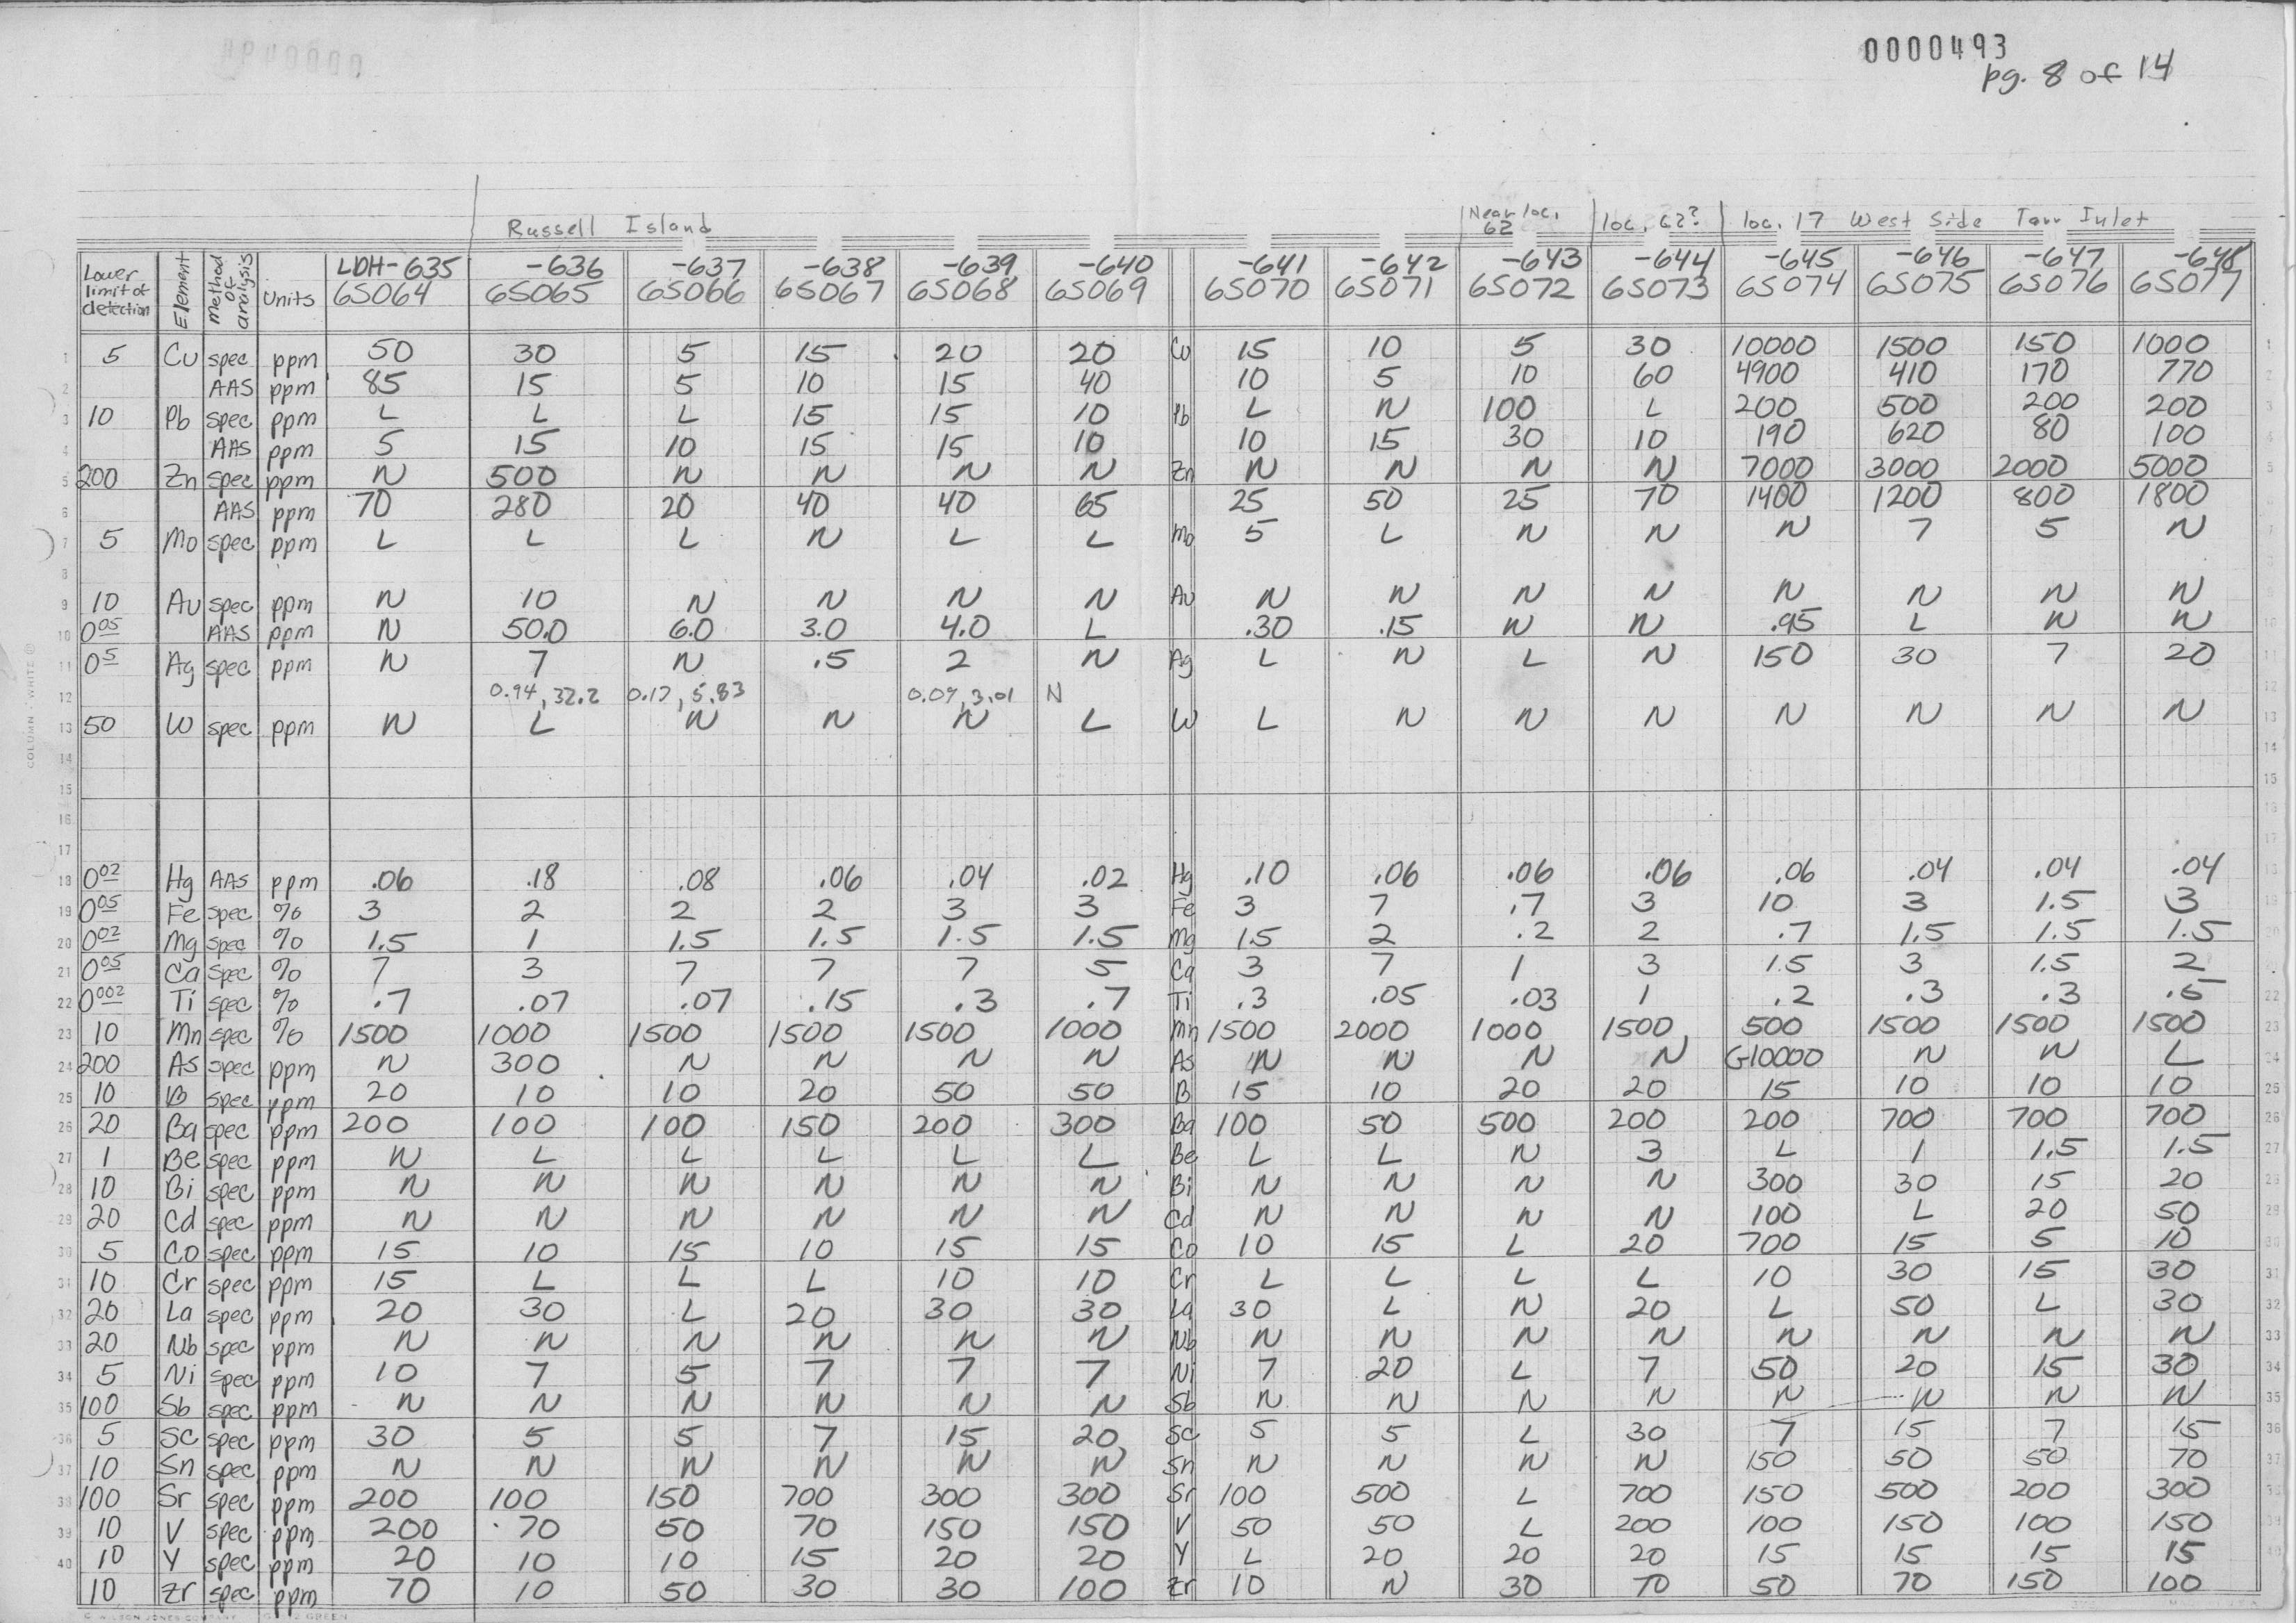 0000493
pg. 8 of 14
Russell Island Near loc. 62 loc. 62? loc. 17 West Side Tarr Inlet
Lower limit of detection Element Method of analysis Units LDH-635 -636 -637 -638 -639 -640 -641 -642 -643 -644 -645 -646 -647 -648
6S064 6S065 6S066 6S067 6S068 6S069 6S070 6S071 6S072 6S073 6S074 6S075 6S076 6S077
1 5 Cu spec ppm 50 30 5 15 20 20 Cu 15 10 5 30 10000 1500 150 1000 1
2 AAS ppm 85 15 5 10 15 40 10 5 10 60 4900 410 170 770 2
3 10 Pb spec ppm L L L 15 15 10 Pb L N 100 L 200 500 200 200 3
4 AAS ppm 5 15 10 15 15 10 10 15 30 10 190 620 80 100 4
5 200 Zn spec ppm N 500 N N N N Zn N N N N 7000 3000 2000 5000 5
6 AAS ppm 70 280 20 40 40 65 25 50 25 70 1400 1200 800 1800 6
7 5 Mo spec ppm L L L N L L Mo 5 L N N N 7 5 N 7
8
9 10 Au spec ppm N 10 N N N N Au N N N N N N N N 9
10 0.05 AAS ppm N 50.0 6.0 3.0 4.0 L .30 .15 N N .95 L N N 10
11 0.5 Ag spec ppm N 7 N .5 2 N Ag L N L N 150 30 7 20 11
12 0.94, 32.2 0.17, 5.83 0.09, 3.01 N 12
13 50 W spec ppm N L N N N L W L N N N N N N N 13
14 14
15 15
16
17
18 0.02 Hg AAS ppm .06 .18 .08 .06 .04 .02 Hg .10 .06 .06 .06 .06 .04 .04 .04 18
19 0.05 Fe spec % 3 2 2 2 3 3 Fe 3 7 .7 3 10 3 1.5 3 19
20 0.02 Mg spec % 1.5 1 1.5 1.5 1.5 1.5 Mg 1.5 2 .2 2 .7 1.5 1.5 1.5 20
21 0.05 Ca spec % 7 3 7 7 7 5 Ca 3 7 1 3 1.5 3 1.5 2 21
22 0.002 Ti spec % .7 .07 .07 .15 .3 .7 Ti .3 .05 .03 1 .2 .3 .3 .5 22
23 10 Mn spec % 1500 1000 1500 1500 1500 1000 Mn 1500 2000 1000 1500 500 1500 1500 1500 23
24 200 As spec ppm N 300 N N N N As N N N N G10000 N N L 24
25 10 B spec ppm 20 10 10 20 50 50 B 15 10 20 20 15 10 10 10 25
26 20 Ba spec ppm 200 100 100 150 200 300 Ba 100 50 500 200 200 700 700 700 26
27 1 Be spec ppm N L L L L L Be L L N 3 L 1 1.5 1.5 27
28 10 Bi spec ppm N N N N N N Bi N N N N 300 30 15 20 28
29 20 Cd spec ppm N N N N N N Cd N N N N 100 L 20 50 29
30 5 Co spec ppm 15 10 15 10 15 15 Co 10 15 L 20 700 15 5 10 30
31 10 Cr spec ppm 15 L L L 10 10 Cr L L L L 10 30 15 30 31
32 20 La spec ppm 20 30 L 20 30 30 La 30 L N 20 L 50 L 30 32
33 20 Nb spec ppm N N N N N N Nb N N N N N N N N 33
34 5 Ni spec ppm 10 7 5 7 7 7 Ni 7 20 L 7 50 20 15 30 34
35 100 Sb spec ppm N N N N N N Sb N N N N N N N N 35
36 5 Sc spec ppm 30 5 5 7 15 20 Sc 5 5 L 30 7 15 7 15 36
37 10 Sn spec ppm N N N N N N Sn N N N N 150 50 50 70 37
38 100 Sr spec ppm 200 100 150 700 300 300 Sr 100 500 L 700 150 500 200 300 38
39 10 V spec ppm 200 70 50 70 150 150 V 50 50 L 200 100 150 100 150 39
40 10 Y spec ppm 20 10 10 15 20 20 Y L 20 20 20 15 15 15 15 40
10 Zr spec ppm 70 10 50 30 30 100 Zr 10 N 30 70 50 70 150 100
COLUMN WHITE
WILSON JONES COMPANY GREEN